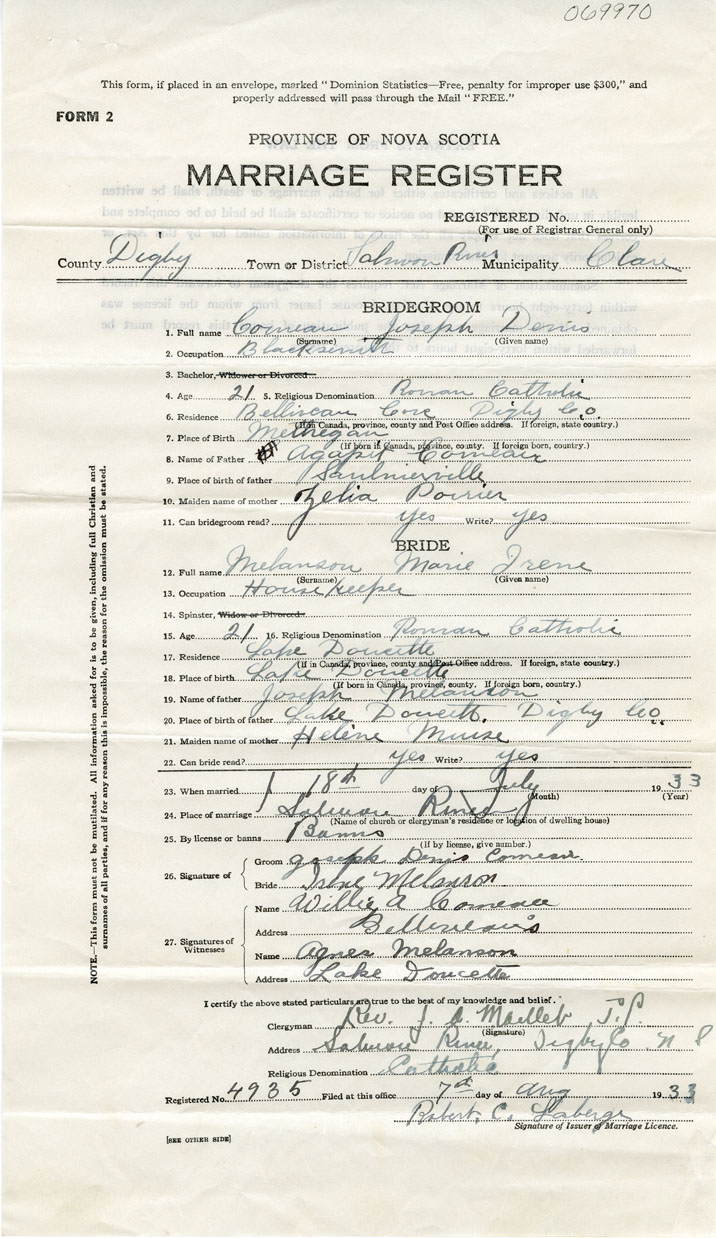 069970
This form, if placed in an envelope, marked "Dominion Statistics—Free, penalty for improper use $300," and
properly addressed will pass through the Mail "FREE."
FORM 2
PROVINCE OF NOVA SCOTIA
MARRIAGE REGISTER
REGISTERED No.
(For use of Registrar General only)
County Digby Town or District Salmon River Municipality Clare
BRIDEGROOM
1. Full name Comeau Joseph Denis
(Surname) (Given name)
2. Occupation Blacksmith
3. Bachelor, Widower or Divorced
4. Age 21 5. Religious Denomination Roman Catholic
6. Residence Belliveau Cove Digby Co.
(If in Canada, province, county and Post Office address. If foreign, state country.)
7. Place of Birth Meteghan
(If born in Canada, province, county. If foreign born, country.)
8. Name of Father Agapit Comeau
9. Place of birth of father Saulnierville
10. Maiden name of mother Zelia Poirier
11. Can bridegroom read? yes Write? yes
BRIDE
12. Full name Melanson Marie Irene
(Surname) (Given name)
13. Occupation Housekeeper
14. Spinster, Widow or Divorced
15. Age 21 16. Religious Denomination Roman Catholic
17. Residence Lake Doucette
(If in Canada, province, county and Post Office address. If foreign, state country.)
18. Place of birth Lake Doucette
(If born in Canada, province, county. If foreign born, country.)
19. Name of father Joseph Melanson
20. Place of birth of father Lake Doucett, Digby Co.
21. Maiden name of mother Helène Muise
22. Can bride read? yes Write? yes
23. When married 18th day of July 1933
(Month) (Year)
24. Place of marriage Salmon River
(Name of church or clergyman's residence or location of dwelling house)
25. By license or banns Banns
(If by license, give number.)
26. Signature of Groom Joseph Denis Comeau
Bride Irene Melanson
27. Signatures of Witnesses
Name Willie A Comeau
Address Belliveau's
Name Agnes Melanson
Address Lake Doucette
I certify the above stated particulars are true to the best of my knowledge and belief.
Clergyman Rev. J. A. P.P.
(Signature)
Address Salmon River, Digby Co N S
Religious Denomination Catholic
Registered No. 4935 Filed at this office 7th day of Aug 1933
Robert. C. Laberge
Signature of Issuer of Marriage Licence.
[SEE OTHER SIDE]
NOTE.—This form must not be mutilated. All information asked for is to be given, including full Christian and
surnames of all parties, and if for any reason this is impossible, the reason for the omission must be stated.